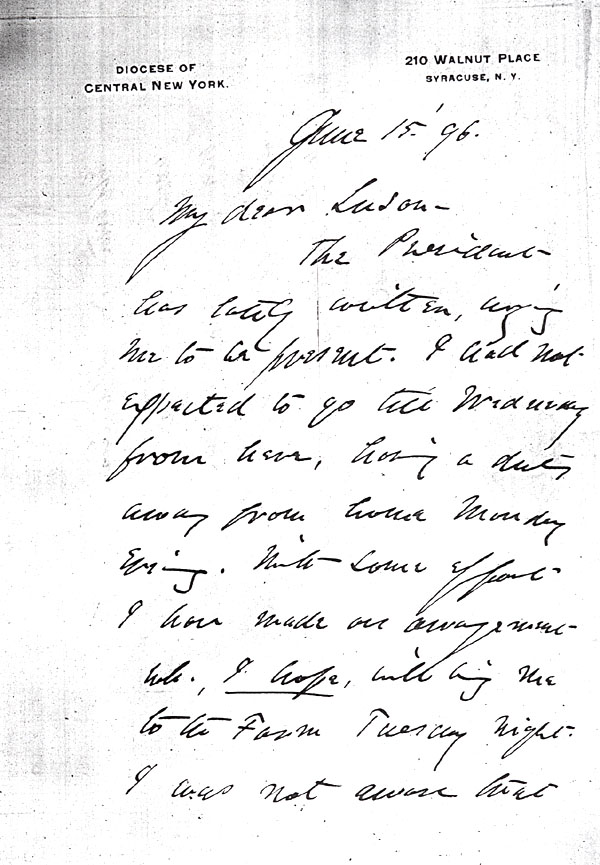 DIOCESE OF
CENTRAL NEW YORK.
210 WALNUT PLACE
SYRACUSE, N. Y.
June 15. '96.
My dear
The President
has lately written, urging
me to be present. I had not
expected to go till Wednesday
from here, having a duty
away from home Monday
Evening. With some effort
I have made an arrangement
wh., I hope, will bring me
to the Farm Tuesday night.
I was not aware that